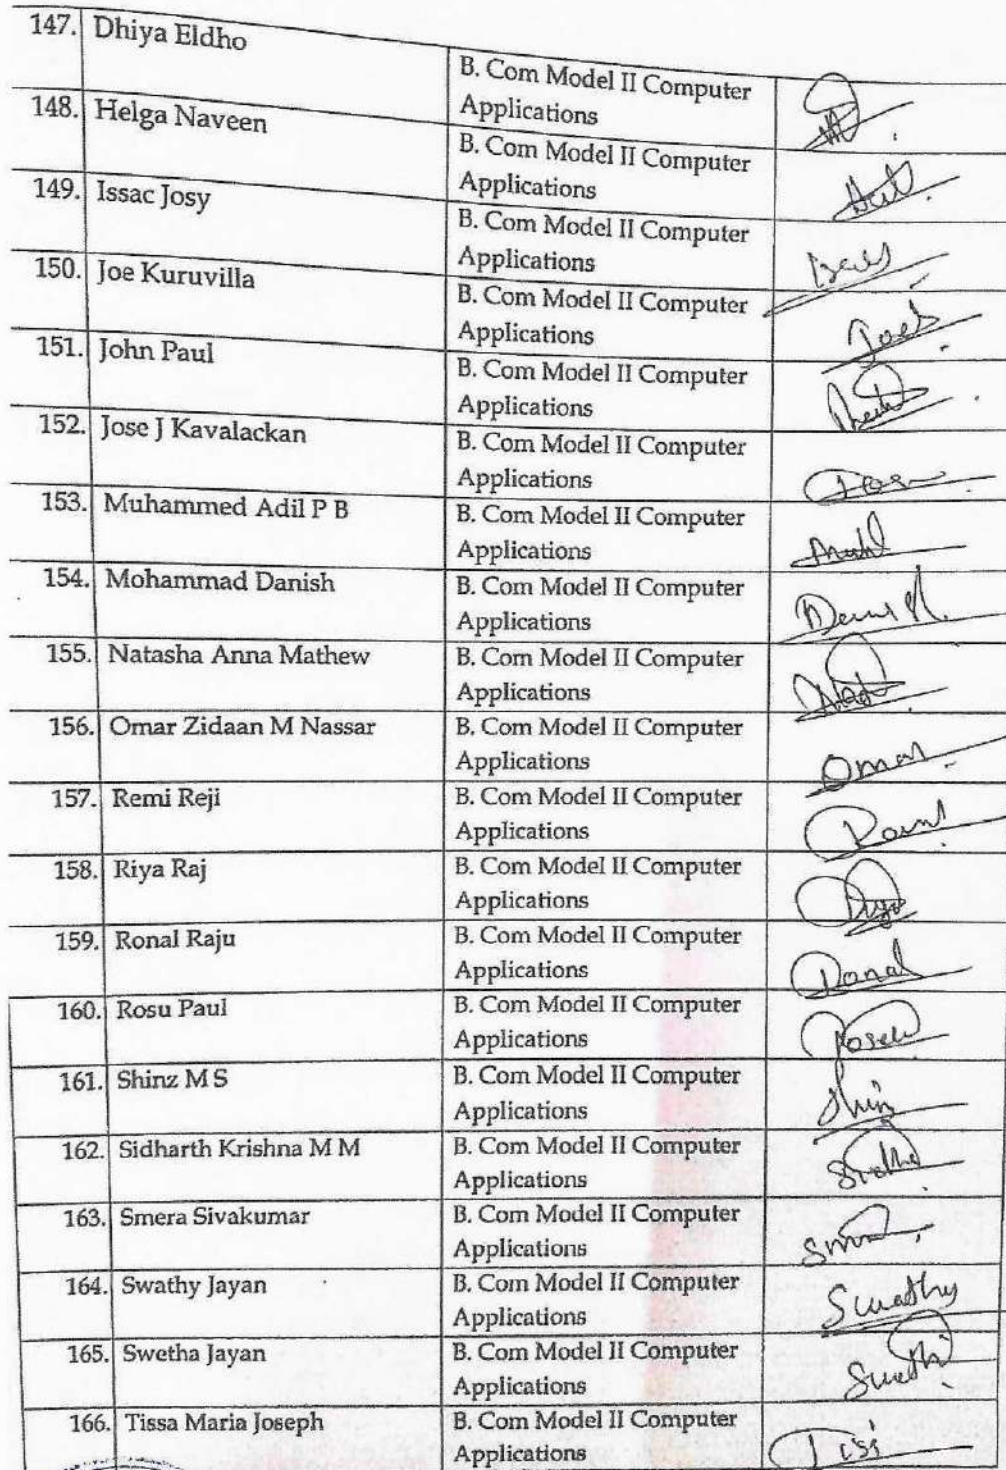 147. Dhiya Eldho
B. Com Model II Computer
Applications
148. Helga Naveen
B. Com Model II Computer
Applications
149. Issac Josy
B. Com Model II Computer
Applications
150. Joe Kuruvilla
B. Com Model II Computer
Applications
151. John Paul
B. Com Model II Computer
Applications
152. Jose J Kavalackan
B. Com Model II Computer
Applications
153. Muhammed Adil P B
B. Com Model II Computer
Applications
154. Mohammad Danish
B. Com Model II Computer
Applications
155. Natasha Anna Mathew
B. Com Model II Computer
Applications
156. Omar Zidaan M Nassar
B. Com Model II Computer
Applications
Omar
157. Remi Reji
B. Com Model II Computer
Applications
158. Riya Raj
B. Com Model II Computer
Applications
159. Ronal Raju
B. Com Model II Computer
Applications
Ronal
160. Rosu Paul
B. Com Model II Computer
Applications
161. Shinz M S
B. Com Model II Computer
Applications
162. Sidharth Krishna M M
B. Com Model II Computer
Applications
163. Smera Sivakumar
B. Com Model II Computer
Applications
164. Swathy Jayan
B. Com Model II Computer
Applications
Swathy
165. Swetha Jayan
B. Com Model II Computer
Applications
166. Tissa Maria Joseph
B. Com Model II Computer
Applications